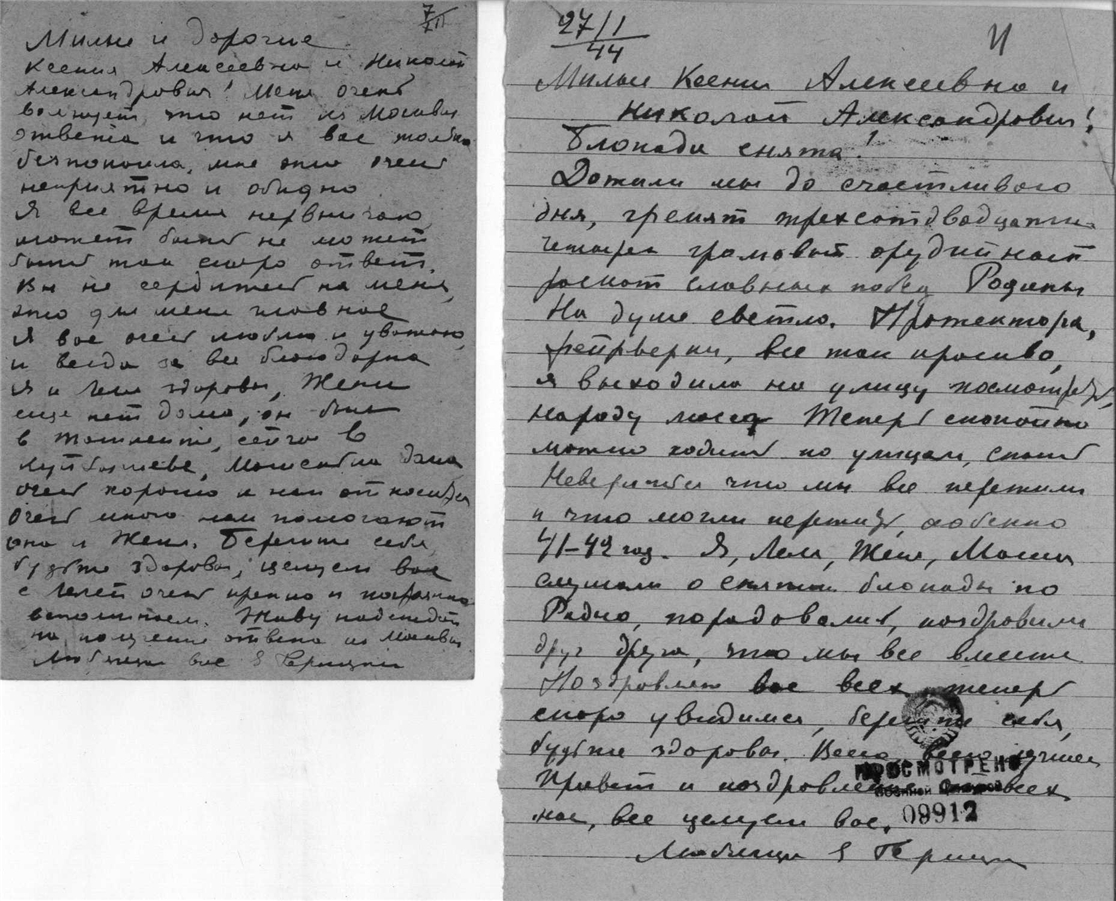 7/XII
Милые и дорогие
Ксения Алексеевна и Николай
Александрович! Меня очень
волнует, что нет из Москвы
ответа и что я вас только
безпокоила, мне это очень
неприятно и обидно
Я все время нервничаю,
может быть не может
быть так скоро ответ.
Вы не сердитесь на меня,
это для меня главное
Я вас очень люблю и уважаю,
и всегда за все благодарна
Я и Леля здоровы, Жени
еще нет дома, он был
в Ташкенте, сейчас в
Куйбышеве, дома
очень хорошо к нам относится
очень много нам помогают
она и Женя. Берегите себя,
будьте здоровы, целуем вас
с Лелей очень крепко и
вспоминаем. Живу надеждой
на получение ответа из Москвы
Любящая вас Е
27/I
44
Милые Ксения Алексеевна и
Николай Александрович!
Блокада снята!
Дожили мы до счастливого
дня, гремят трехсотдвадцати
четырех орудий наст
раскат славных побед Родины
На душе светло. Прожектора,
фейрверки, все так красиво,
я выходила на улицу посмотреть,
народу масса Теперь спокойно
можно ходить по улицам, спать
Неверится что мы все пережили
и что могли пережить, особенно
41–42 год. Я, Леля, Женя, Маша
слушали о снятии блокады по
Радио, порадовались, поздравили
друг друга, что мы все вместе
Поздравляю вас всех, теперь
скоро увидимся, берегите себя,
будьте здоровы. Всего, всего лучшего
Привет и поздравление всех
нас, все целуем вас.
Любящая Е
ПРОСМОТРЕНО
Военной Цензурой
09912